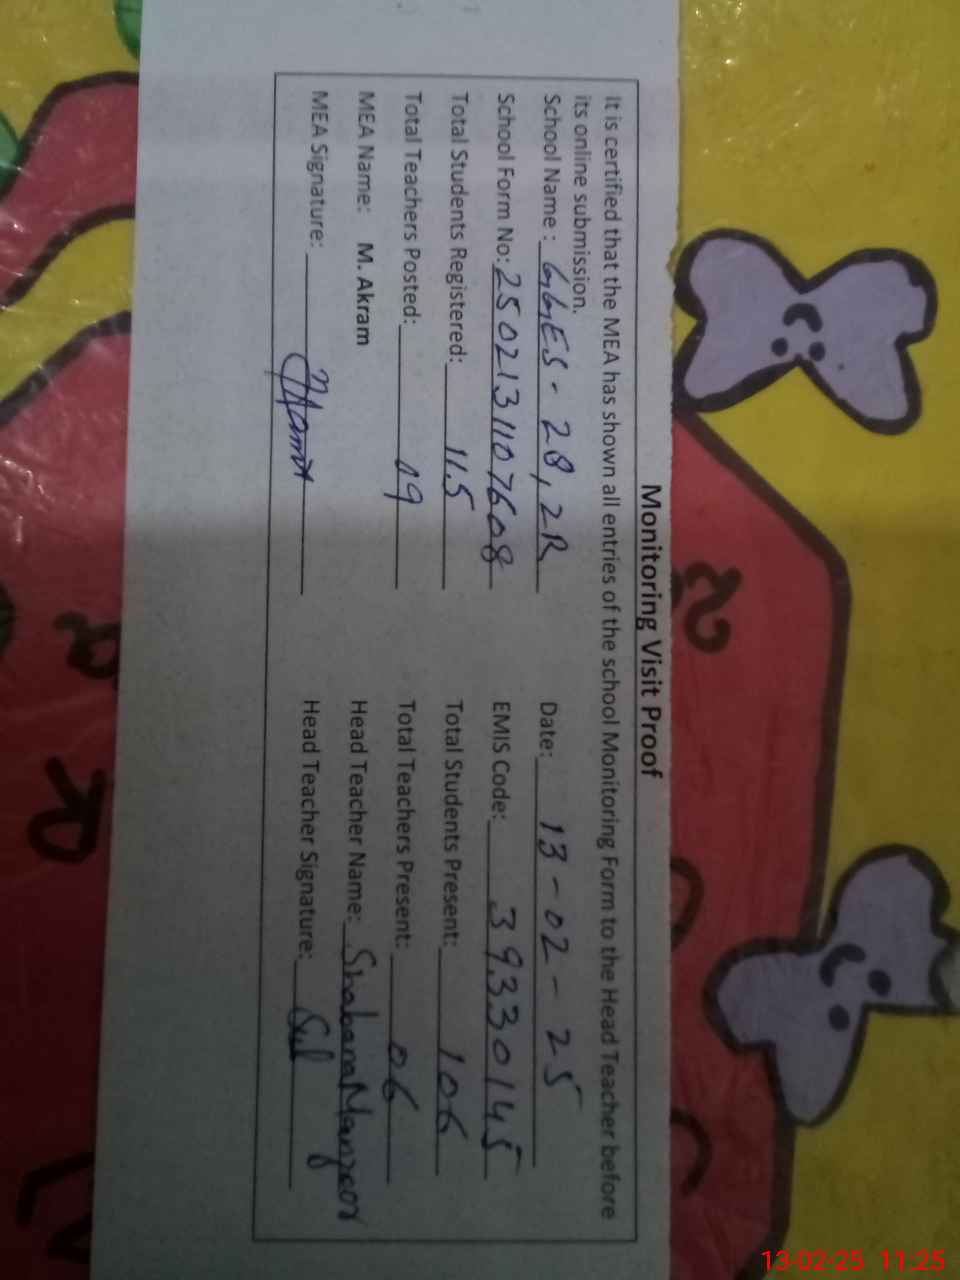 Monitoring Visit Proof
It is certified that the MEA has shown all entries of the school Monitoring Form to the Head Teacher before
its online submission.
School Name : GGES - 28, 2R Date: 13 - 02 - 25
School Form No: 2502131107608 EMIS Code: 39330145
Total Students Registered: 115 Total Students Present: 106
Total Teachers Posted: 09 Total Teachers Present: 06
MEA Name: M. Akram Head Teacher Name: Shabana Manzoor
MEA Signature: Head Teacher Signature:
13-02-25 11:25